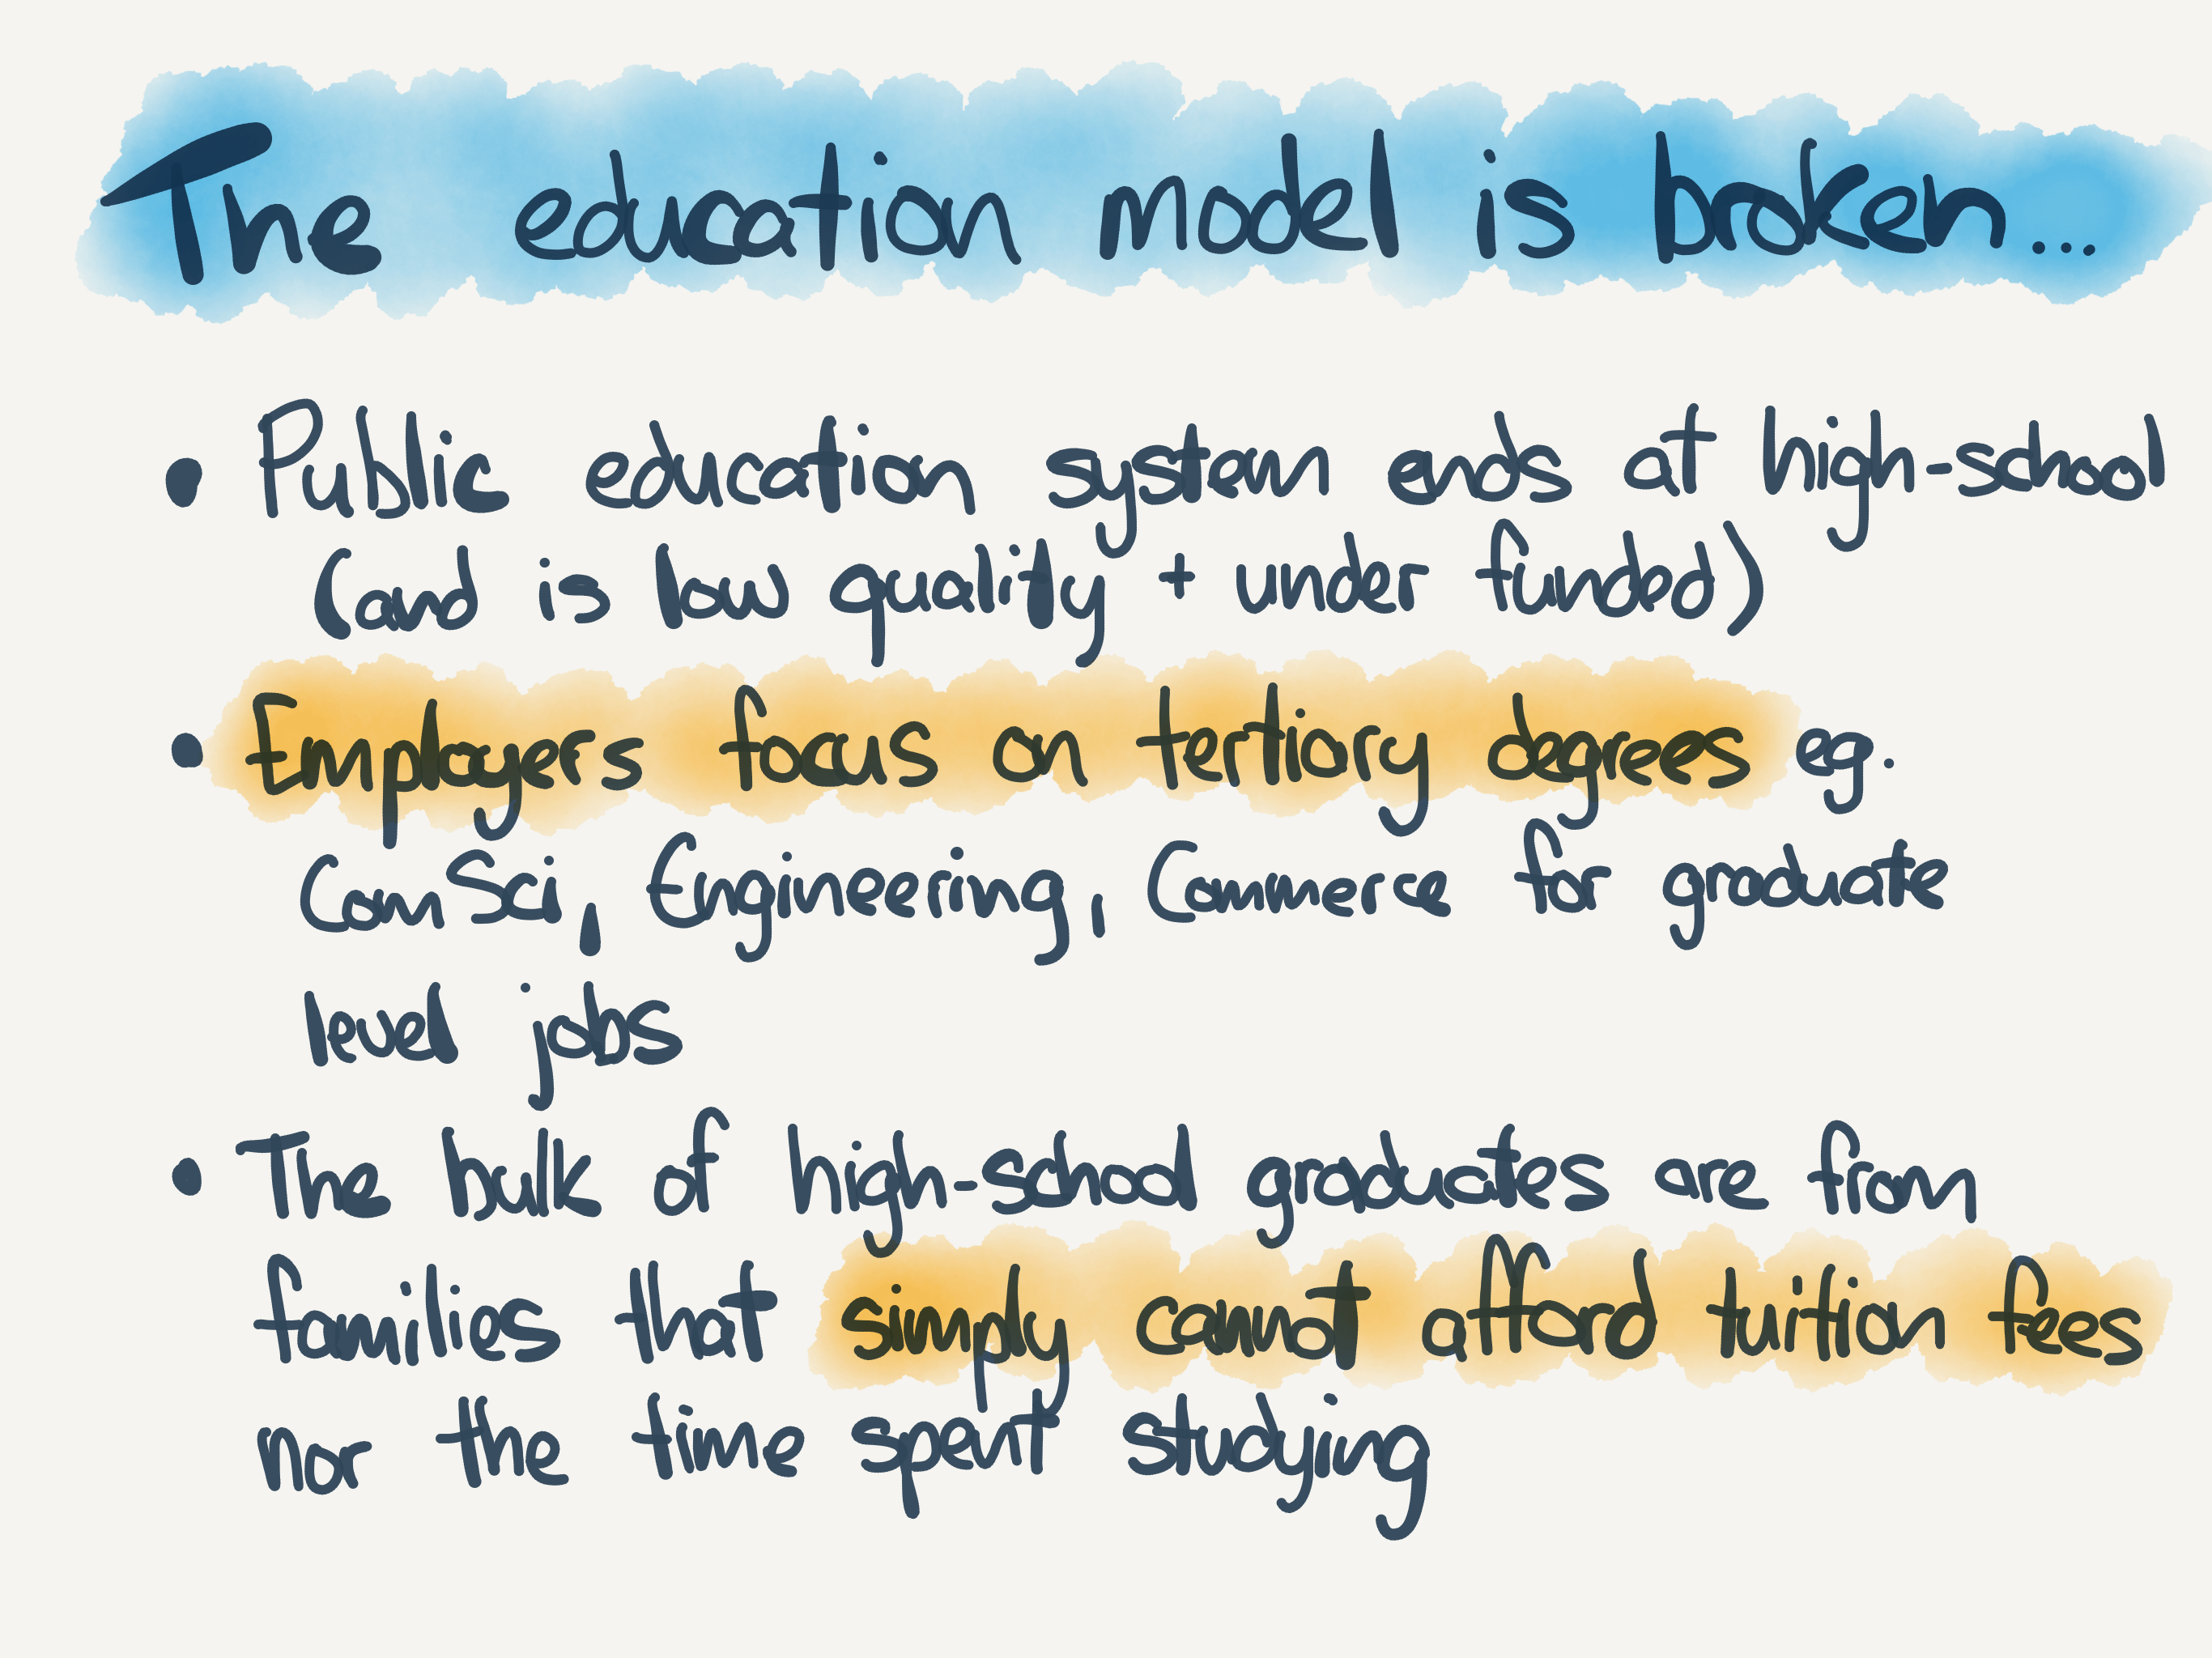 The education model is broken...
• Public education system ends at high-school
(and is low quality + under funded)
• Employers focus on tertiary degrees eg.
ComSci, Engineering, Commerce for graduate
level jobs
• The bulk of high-school graduates are from
families that simply cannot afford tuition fees
nor the time spent studying